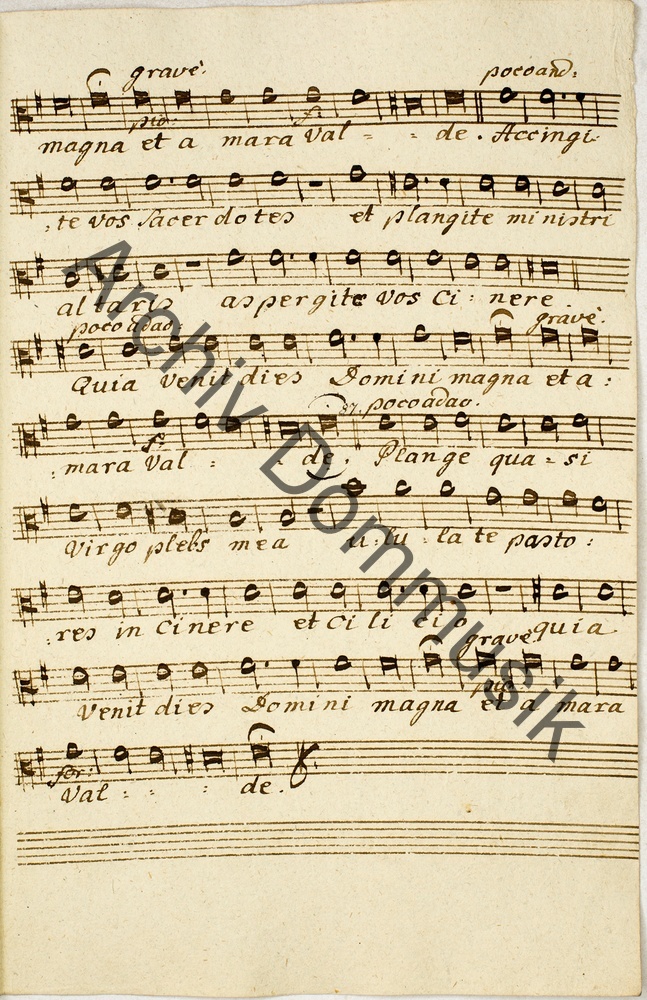 grave. poco and:
pia: f:
magna et a mara Val - - de. Accingi
:te vos sacerdotes et plangite ministri
altaris aspergite vos Ci: nere.
poco adao: grave.
Quia venit dies Domini magna et a:
poco adao.
f:
:mara Val - - de. Plange qua - si
Virgo plebs mea u: lu: la te pasto:
:res in Cinere et Ci li cio quia
grave.
pia
Venit dies Domini magna et a mara
for:
Val - - - de.
Archiv Dommusik